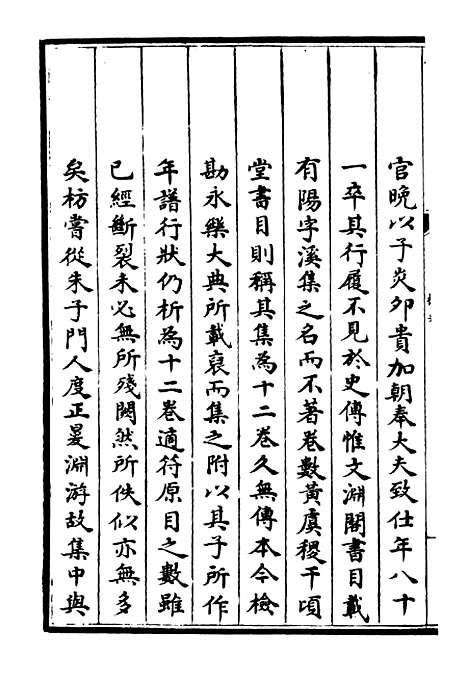 官晚以子炎卯貴加朝奉大夫致仕年八十
一卒其行履不見於史傳惟文淵閣書目載
有陽字溪集之名而不著卷數黃虞稷千頃
堂書目則稱其集為十二卷久無傳本今檢
勘永樂大典所載裒而集之附以其子所作
年譜行狀仍析為十二卷適符原目之數雖
已經斷裂未必無所殘闕然所佚似亦無多
矣枋嘗從朱子門人度正㬊淵游故集中與